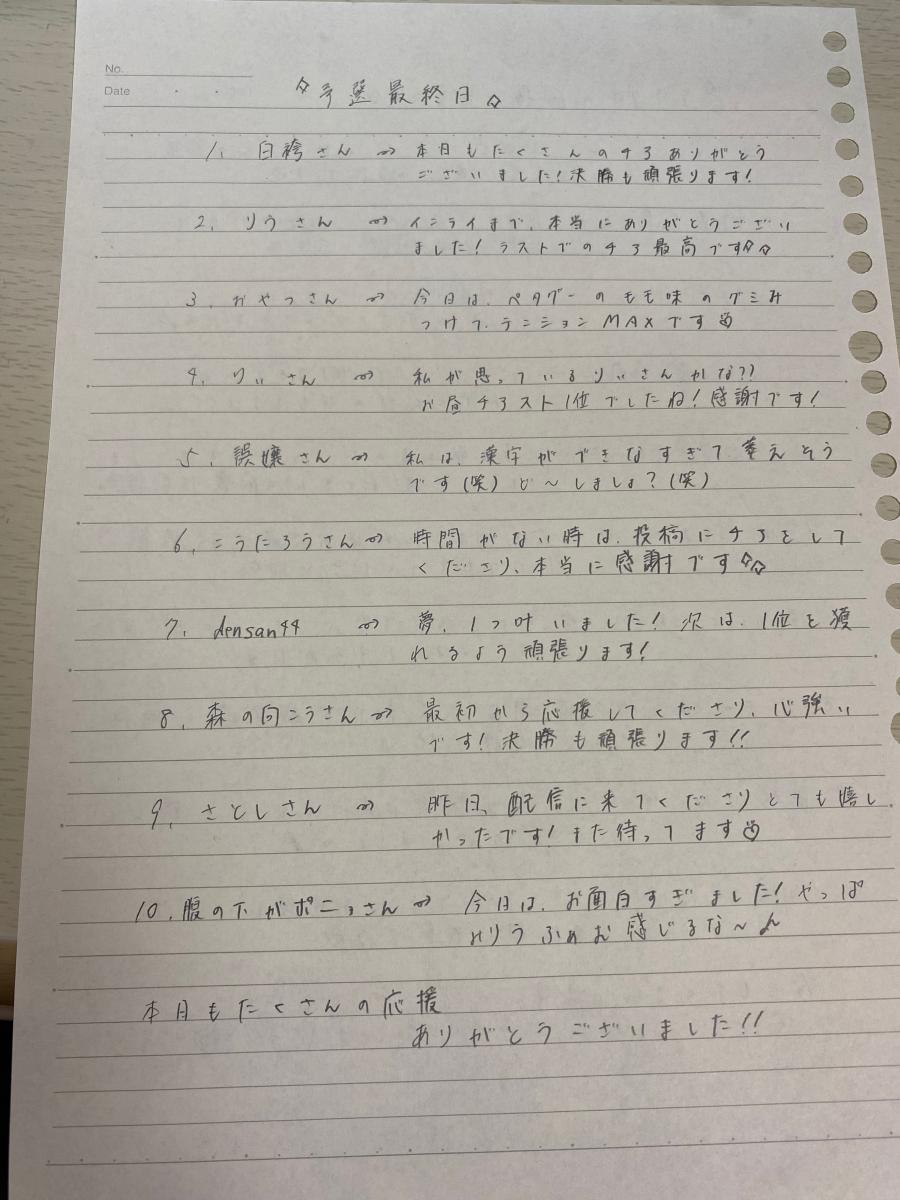 No.
Date
☆予選最終日☆
1. 白袴さん ⇝ 本日もたくさんのチアありがとう
ございました!決勝も頑張ります!
2. りうさん ⇝ インライまで、本当にありがとうござい
ました!ラストでのチア最高です☆☆
3. おやつさん ⇝ 今日は、ペタグーのもも味のグミみ
つけて、テンションMAXです
4. りぃさん ⇝ 私が思っているりぃさんかな??
お昼チアスト1位でしたね!感謝です!
5. 誤嬢さん ⇝ 私は、漢字ができなすぎて、萎えそう
です(笑) ど〜しましょ?(笑)
6. こうたろうさん ⇝ 時間がない時は、投稿にチアをして
くださり、本当に感謝です☆☆
7. densan44 ⇝ 夢、1つ叶いました!次は、1位を獲
れるよう頑張ります!
8. 森の向こうさん ⇝ 最初から応援してくださり、心強い
です!決勝も頑張ります!!
9. さとしさん ⇝ 昨日、配信に来てくださりとても嬉し
かったです!また待ってます
10. 腹の下がポニョさん ⇝ 今日は、お面白すぎました!やっぱ
りうふぁお感じるな〜ん
本日もたくさんの応援
ありがとうございました!!